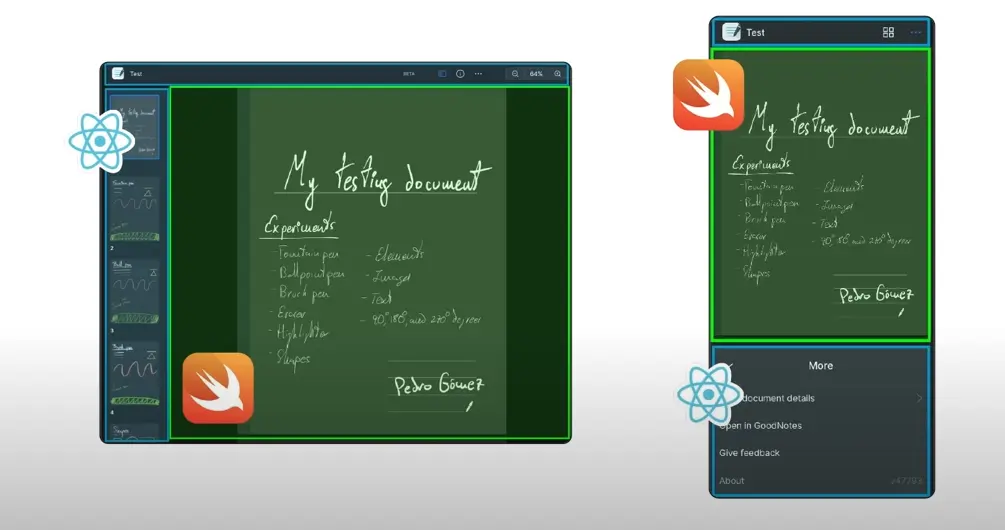 Test
BETA
64%
My testing document
Experiments
- Fountain pen
- Ballpoint pen
- Brush pen
- Eraser
- Highlighter
- Shapes
- Elements
- Images
- Text
- 90°, 180°, and 270° degrees
Pedro Gómez
Fountain pen
2
Ball pen
3
Brush pen
4
Shapes
Test
My testing document
Experiments
- Fountain pen
- Ballpoint pen
- Brush pen
- Eraser
- Highlighter
- Shapes
- Elements
- Images
- Text
- 90°, 180°, and 270° degrees
Pedro Gómez
More
document details
Open in GoodNotes
Give feedback
About